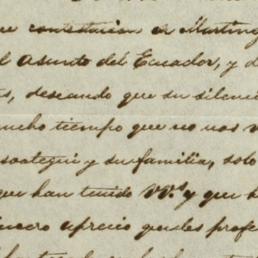 contestacion de Martinez
el asunto del Ecuador, y d
deseando que su silenci
mucho tiempo que no nos v
y su familia, solo
que han tenido VV.s y que h
aprecio que les profe